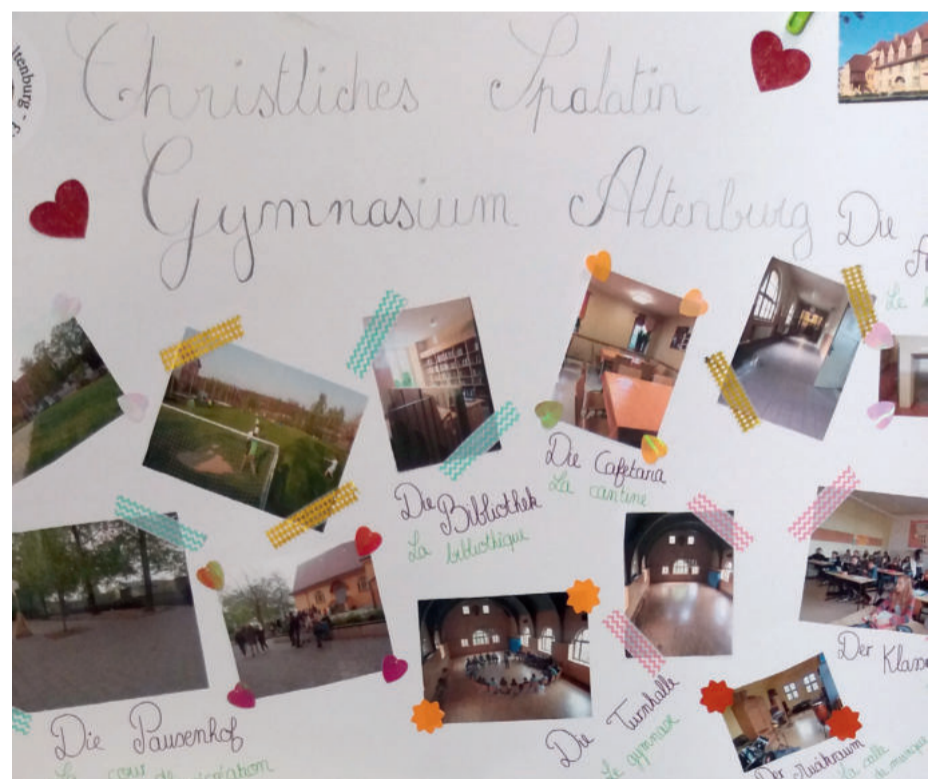 Christliches Spalatin
Gymnasium Altenburg
Die
Le
Die Bibliothek
La bibliothèque
Die Cafetaria
La cantine
Die Pausenhof
La cour de récréation
Die Turnhalle
Le gymnase
Der Klasse
Der Musikraum
La salle
de musique